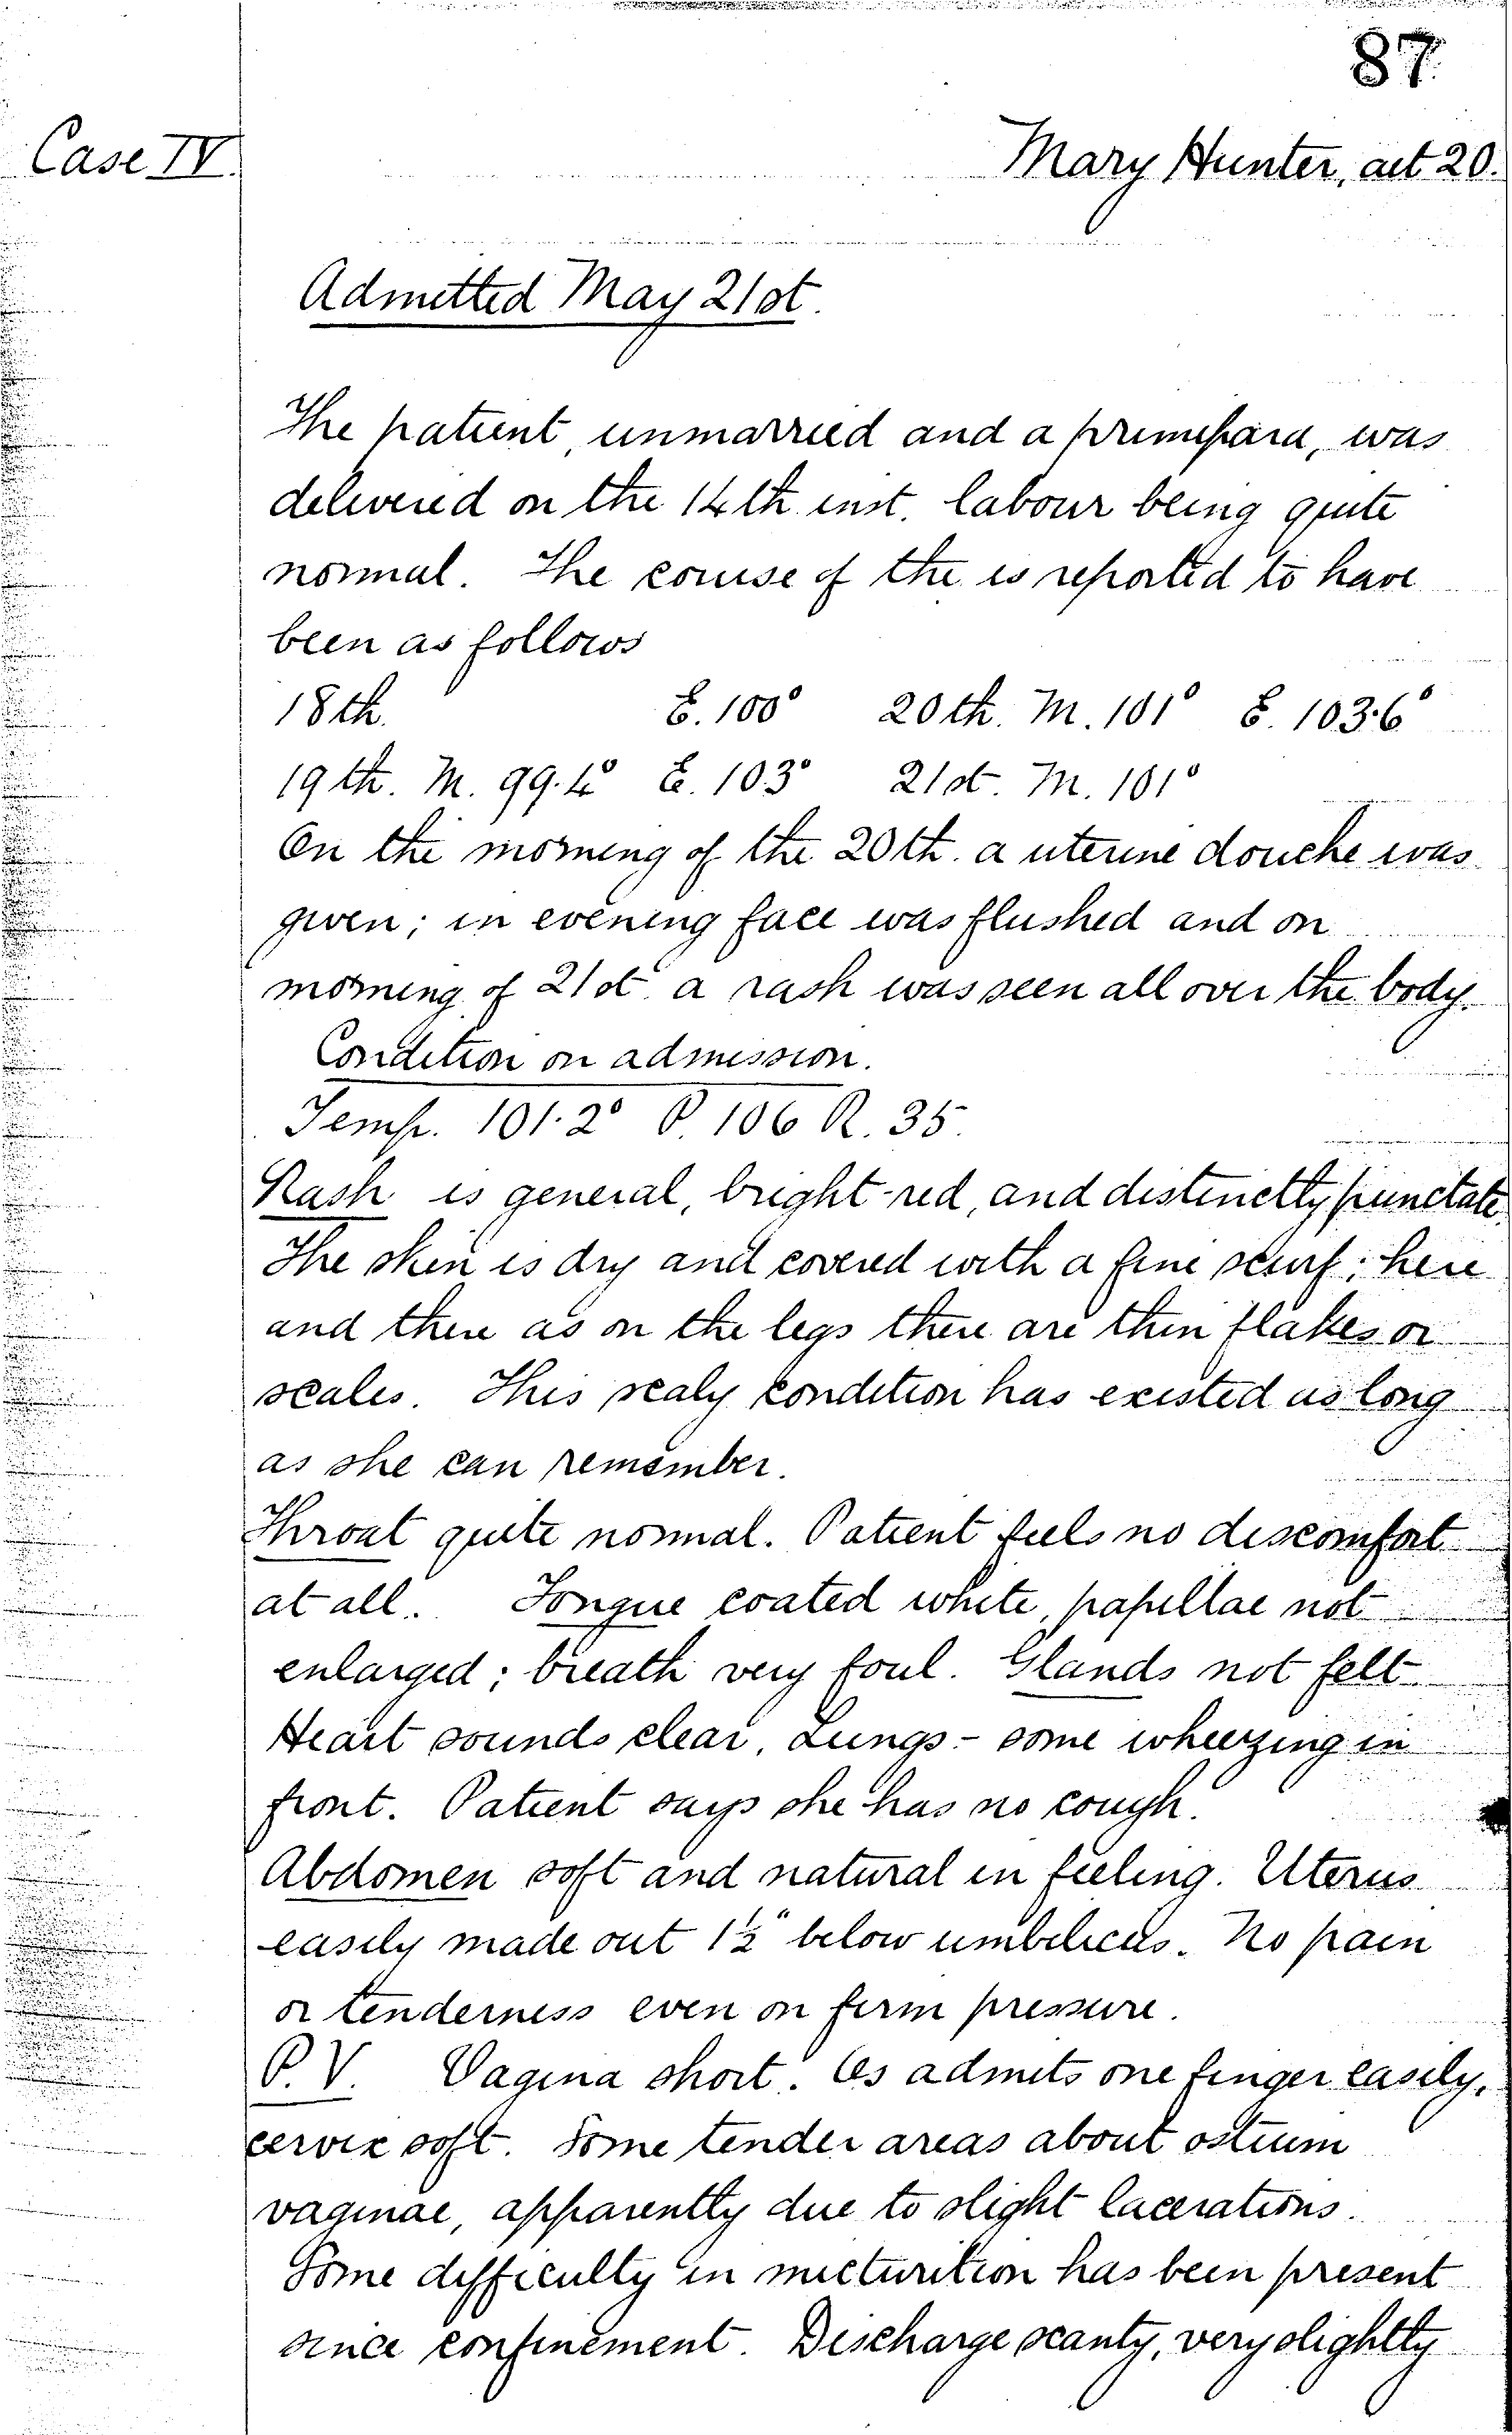 87.
Case IV.
Mary Hunter, aet 20.
Admitted May 21st.
The patient, unmarried and a primipara, was
delivered on the 14th inst. labour being quite
normal. The course of the is reported to have
been as follows
18th. E. 100° 20th. M. 101° E. 103.6°
19th. M. 99.4° E. 103° 21st. M. 101°
On the morning of the 20th. a uterine douche was
given; in evening face was flushed and on
morning of 21st. a rash was seen all over the body.
Condition on admission.
Temp. 101.2° P. 106 R. 35.
Rash is general, bright-red, and distinctly punctate.
The skin is dry and covered with a fine scurf; here
and there as on the legs there are thin flakes or
scales. This scaly condition has existed as long
as she can remember.
Throat quite normal. Patient feels no discomfort
at all. Tongue coated white, papillae not
enlarged; breath very foul. Glands not felt.
Heart sounds clear, Lungs - some wheezing in
front. Patient says she has no cough.
Abdomen soft and natural in feeling. Uterus
easily made out 1½" below umbilicus. No pain
or tenderness even on firm pressure.
P.V. Vagina short. Os admits one finger easily,
cervix soft. Some tender areas about ostium
vaginae, apparently due to slight lacerations.
Some difficulty in micturition has been present
since confinement. Discharge scanty, very slightly